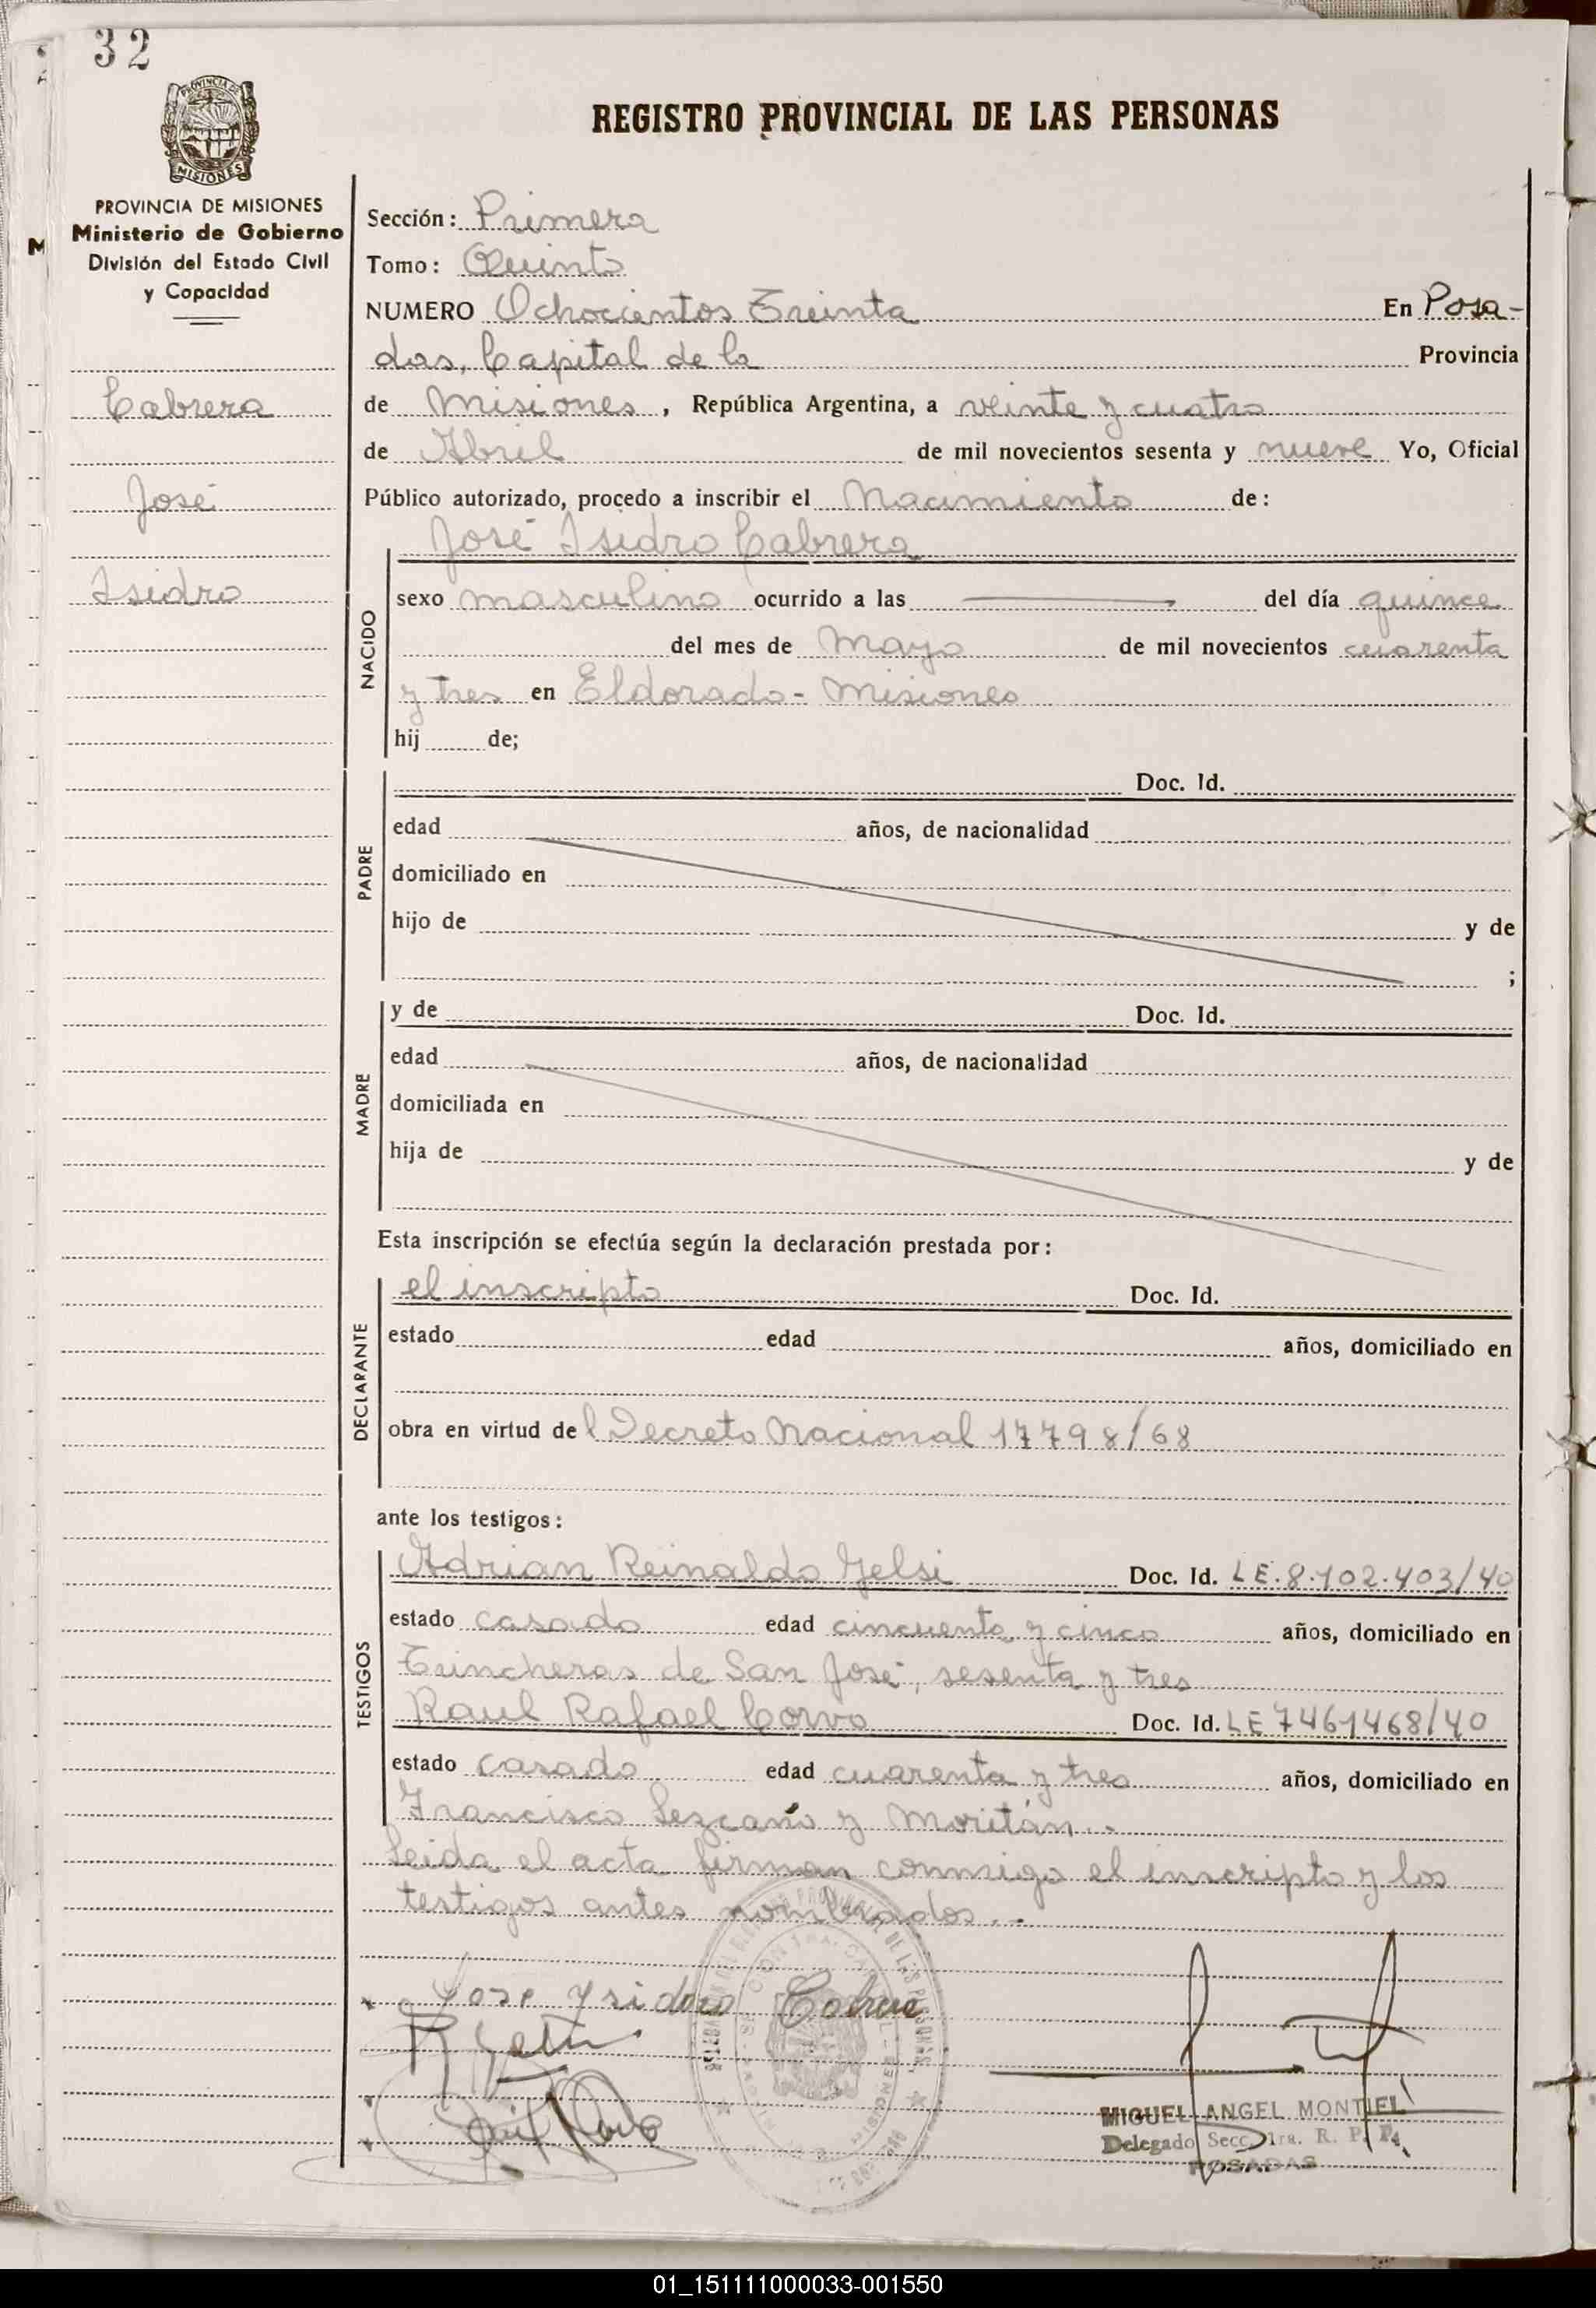 32
PROVINCIA DE
MISIONES
REGISTRO PROVINCIAL DE LAS PERSONAS
PROVINCIA DE MISIONES
Ministerio de Gobierno
División del Estado Civil
y Capacidad
M
Cabrera
José
Isidro
Sección: Primera
Tomo: Quinto
NUMERO Ochocientos Treinta En Posa-
das, Capital de la Provincia
de Misiones, República Argentina, a veinte y cuatro
de Abril de mil novecientos sesenta y nueve Yo, Oficial
Público autorizado, procedo a inscribir el Nacimiento de:
José Isidro Cabrera
NACIDO
sexo masculino ocurrido a las del día quince
del mes de Mayo de mil novecientos cuarenta
y tres en Eldorado - Misiones
hij de;
PADRE
Doc. Id.
edad años, de nacionalidad
domiciliado en
hijo de y de
;
MADRE
y de Doc. Id.
edad años, de nacionalidad
domiciliada en
hija de y de
Esta inscripción se efectúa según la declaración prestada por:
DECLARANTE
el inscripto Doc. Id.
estado edad años, domiciliado en
obra en virtud del Decreto Nacional 17798/68
ante los testigos:
TESTIGOS
Adrian Reinaldo Gelsi Doc. Id. LE.8.102.403/40
estado casado edad cincuenta y cinco años, domiciliado en
Trincheras de San José, sesenta y tres
Raul Rafael Corvo Doc. Id. LE 7461468/40
estado casado edad cuarenta y tres años, domiciliado en
Francisco Lezcano y Moritán.-
Leida el acta firman conmigo el inscripto y los
testigos antes nombrados.-
Jose Ysidoro Cabrera
MIGUEL ANGEL MONTIEL
Delegado Secc. 1ra. R. P. P.
POSADAS
01_151111000033-001550